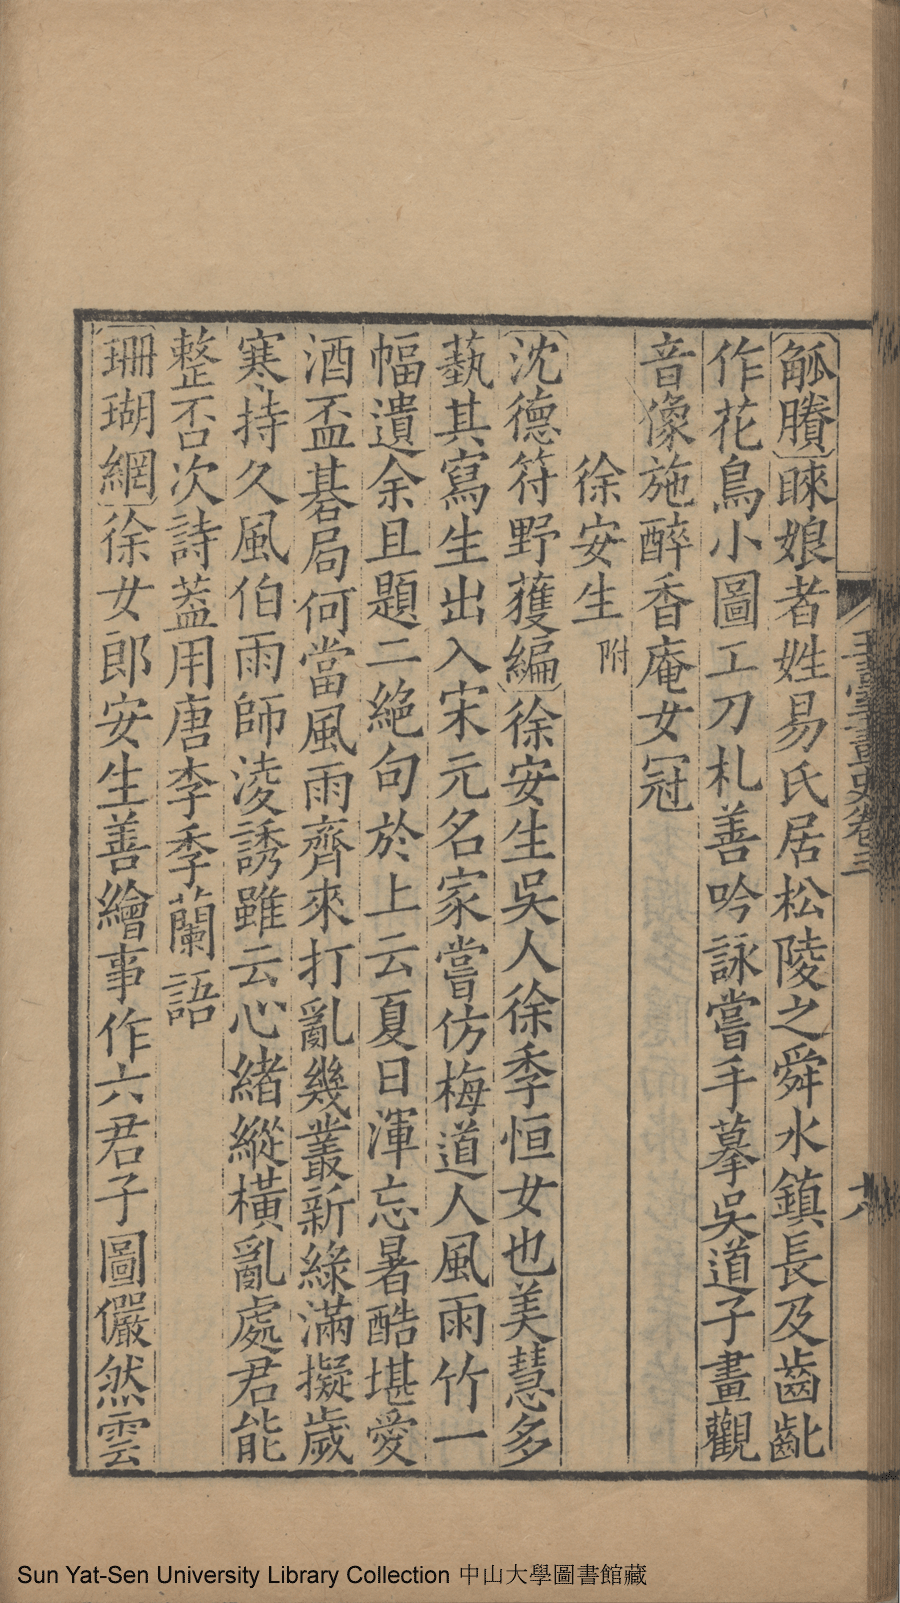 觚賸睞娘者姓易氏居松陵之舜水鎮長及齒齔
作花鳥小圖工刀札善吟詠嘗手摹吳道子畫觀
音像施醉香庵女冠
徐安生附
沈德符野獲編徐安生吳人徐季恒女也美慧多
藝其寫生出入宋元名家嘗仿梅道人風雨竹一
幅遺余且題二絕句於上云夏日渾忘暑酷堪愛
酒盃棊局何當風雨齊來打亂幾叢新綠滿擬歲
寒持久風伯雨師淩誘雖云心緒縱橫亂處君能
整否次詩葢用唐李季蘭語
珊瑚網徐女郎安生善繪事作六君子圖儼然雲
玉臺畫史卷三
Sun Yat-Sen University Library Collection 中山大學圖書館藏